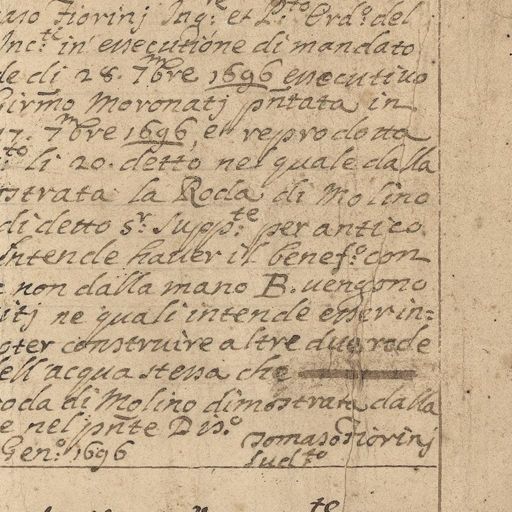 Fiorinj Ing.re et P.to Erd.o del
Inc.te in essecutione di mandato
de di 28. 7mbre 1696 essecutiuo
Girm̃o Moronatj pñtata in
17. 7mbre 1696, et reprodotta
li 20. detto nel quale dalla
strata la Roda di Molino
di detto S.r Supp.te per antico
Intende hauer il benef.o con
e non dalla mano B. uengono
itj ne quali intende esser in=
oter construire altre due rode
ell'acqua stessa che
roda di Molino dimostrata dalla
e nel pñte Dis.o
Gen.o 1696
Tomaso Fiorinj
Sud.to